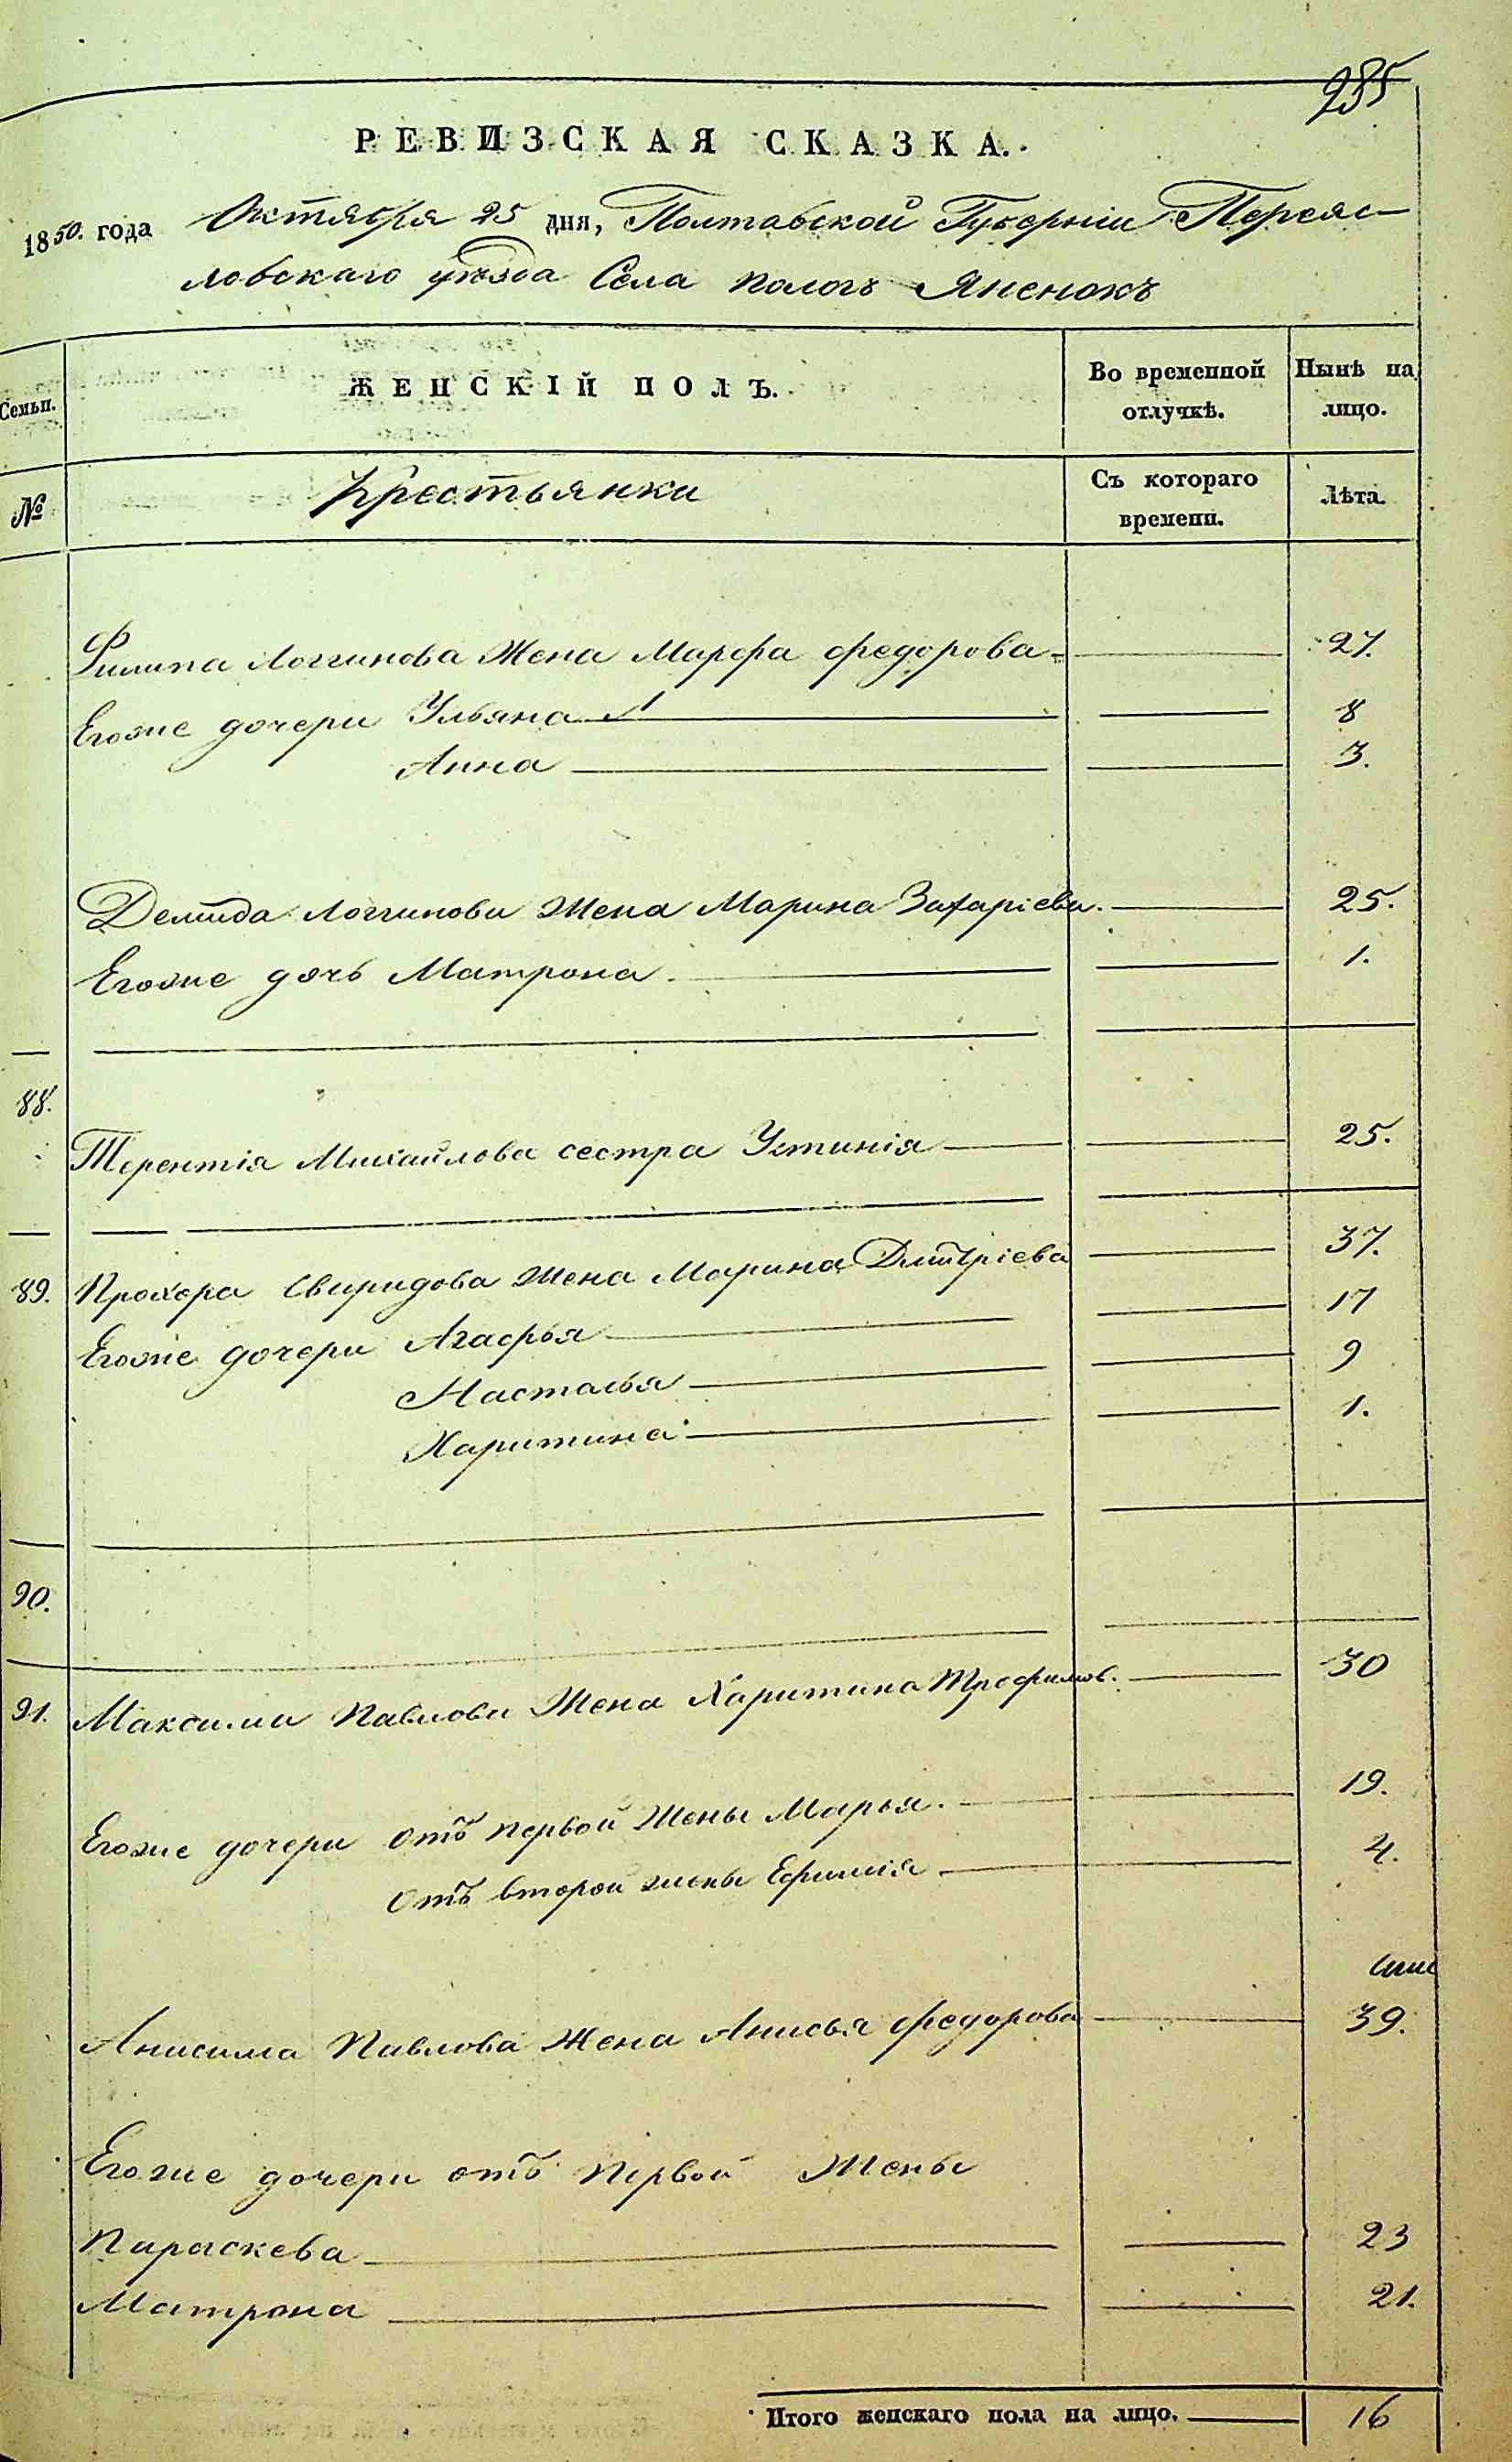 235
РЕВИЗСКАЯ СКАЗКА.
1850. года Октября 25 дня, Полтавской Губерніи Переяс-
ловскаго уѣзда Села Пологъ Яненокъ
Семьи. ЖЕНСКІЙ ПОЛЪ. Во временной отлучкѣ. Нынѣ на лицо.
№ Крестьянки Съ котораго времени. Лѣта.
Филипа Логгинова Жена Марфа Федорова 27.
Егоже дочери Ульяна 8
Анна 3.
Демида Логгинова Жена Марина Захаріева. 25.
Егоже дочь Матрона 1.
88.
Терентія Михайлова сестра Устинія 25.
89. Прохора Свиридова Жена Марина Дмитріева 37.
Егоже дочери Агафья 17
Насталья 9
Харитина 1.
90.
91. Максима Павлова Жена Харитина Трофимов. 30
Егоже дочери отъ первой Жены Марья. 19.
отъ второй жены Ефимія 4.
Анисима Павлова Жена Анисья Федорова 39.
Егоже дочери отъ первой Жены
Параскева 23
Матрона 21.
Итого женскаго пола на лицо. 16